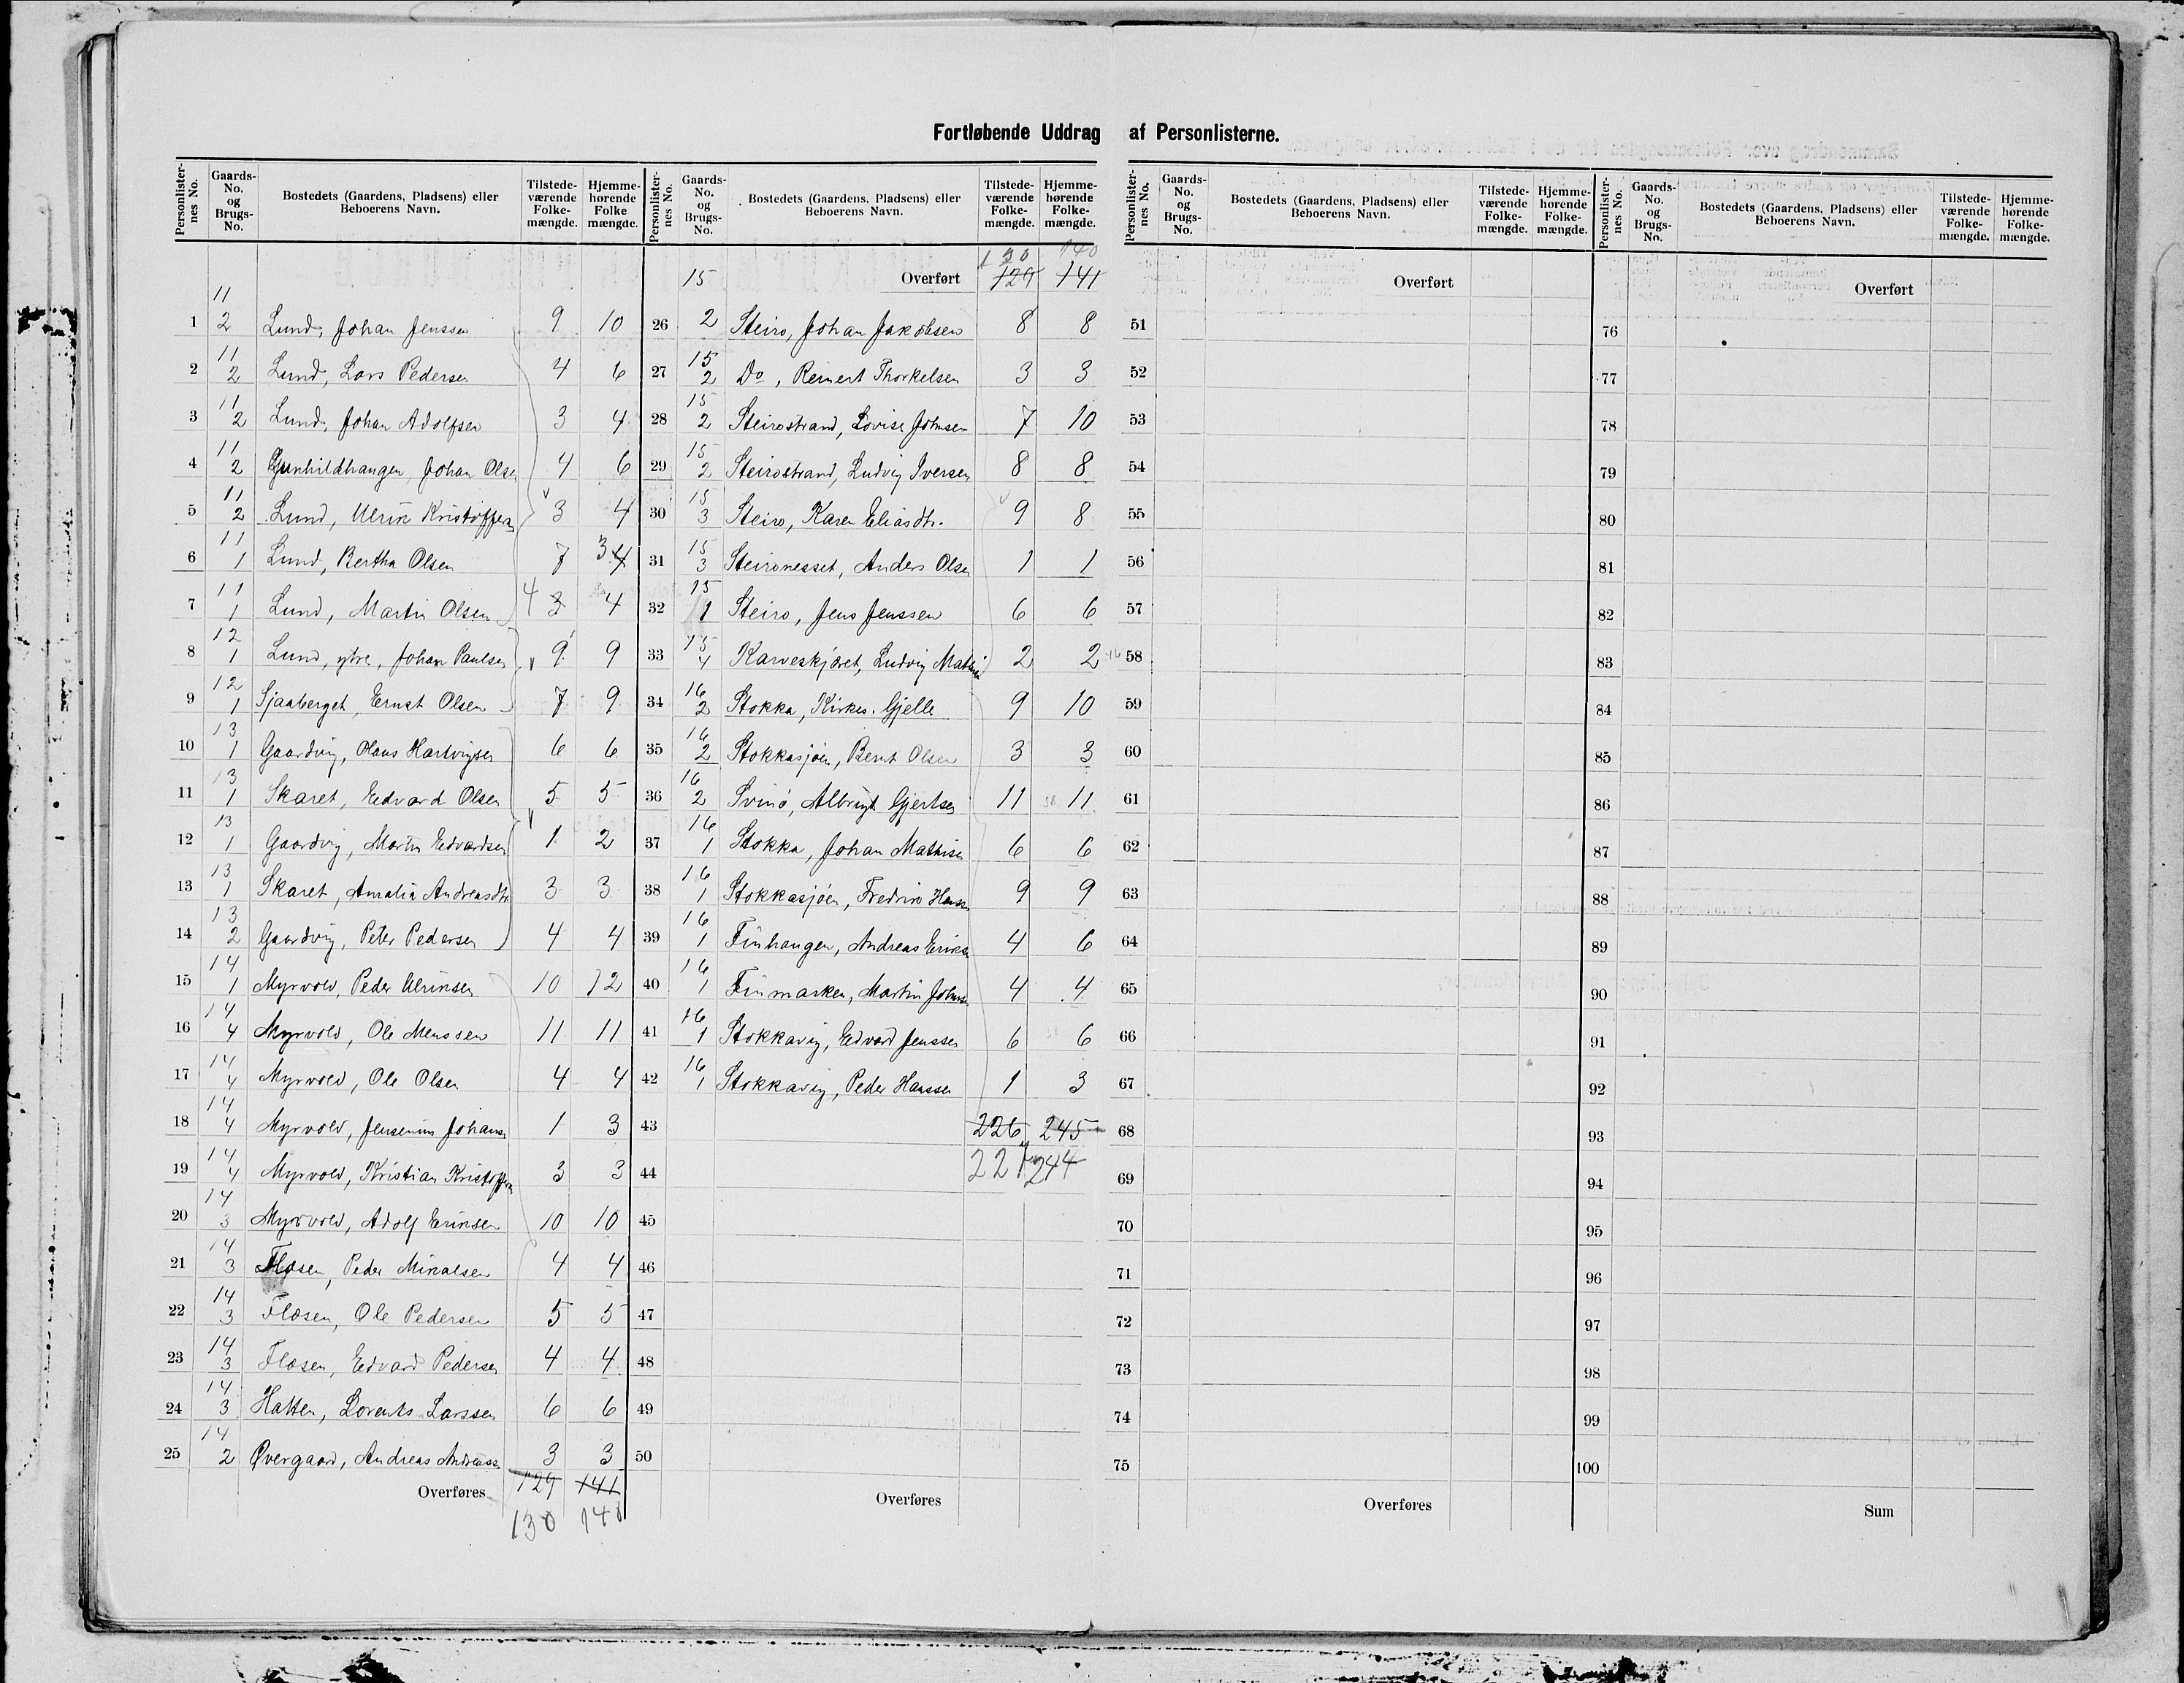 Fortløbende Uddrag af Personlisterne.
Personlister-nes No. Gaards-No. og Brugs-No. Bostedets (Gaardens, Pladsens) eller Beboerens Navn. Tilstede-værende Folke-mængde. Hjemme-hørende Folke mængde.
1 11 2 Lund, Johan Jenssen 9 10
2 11 2 Lund, Lars Pedersen 4 6
3 11 2 Lund, Johan Adolfsen 3 4
4 11 2 Gunhildhaugen, Johan Olsen 4 6
5 11 2 Lund, Ulrik Kristoffersen 3 4
6 11 1 Lund, Bertha Olsen 7 3 4
7 11 1 Lund, Martin Olsen 4 3 4
8 12 1 Lund, ytre, Johan Paulsen 9 9
9 12 1 Sjaaberget, Ernst Olsen 7 9
10 13 1 Gaardvig, Hans Hartvigsen 6 6
11 13 1 Skaret, Edvard Olsen 5 5
12 13 1 Gaardvig, Martin Edvardsen 1 2
13 13 1 Skaret, Amalia Andreasdtr 3 3
14 13 2 Gaardvig, Peter Pedersen 4 4
15 14 1 Myrvold, Peder Ulriksen 10 12
16 14 4 Myrvold, Ole Monssen 11 11
17 14 4 Myrvold, Ole Olsen 4 4
18 14 4 Myrvold, Jensenius Johans 1 3
19 14 4 Myrvold, Kristian Kristoffersen 3 3
20 14 3 Myrvold, Adolf Eriksen 10 10
21 14 3 Flosen, Peder Mikalsen 4 4
22 14 3 Flosen, Ole Pedersen 5 5
23 14 3 Flosen, Edvard Pedersen 4 4
24 14 3 Hatten, Lorents Larssen 6 6
25 14 2 Øvergaard, Andreas Andreass 3 3
Overføres 129 141
130 140
Personlister-nes No. Gaards-No. og Brugs-No. Bostedets (Gaardens, Pladsens) eller Beboerens Navn. Tilstede-værende Folke-mængde. Hjemme-hørende Folke-mængde.
130 140
Overført 129 141
26 15 2 Steiro, Johan Jakobsen 8 8
27 15 2 Do, Reinert Thorkelsen 3 3
28 15 2 Steirostrand, Lovise Johnsen 7 10
29 15 2 Steirostrand, Ludvig Iversen 8 8
30 15 3 Steiro, Karen Eliasdtr. 9 8
31 15 3 Steironesset, Anders Olsen 1 1
32 15 1 Steiro, Jens Jenssen 6 6
33 15 4 Karveskjæret, Ludvig Mathis 2 2
34 16 2 Stokka, Kirkes. Gjelle 9 10
35 16 2 Stokkasjøen, Bernt Olsen 3 3
36 16 2 Svinø, Albrigt Gjertsen 11 11
37 16 1 Stokka, Johan Mathisen 6 6
38 16 1 Stokkasjøen, Fredrik Hanss 9 9
39 16 1 Finhaugen, Andreas Eriks 4 6
40 16 1 Finmarken, Martin Johns 4 4
41 16 1 Stokkavig, Edvard Jenssen 6 6
42 16 1 Stokkavig, Peder Hanssen 1 3
43 226 245
44 227 244
45
46
47
48
49
50
Overføres
Personlister-nes No. Gaards-No. og Brugs-No. Bostedets (Gaardens, Pladsens) eller Beboerens Navn. Tilstede-værende Folke-mængde. Hjemme-hørende Folke-mængde.
Overført
51
52
53
54
55
56
57
58
59
60
61
62
63
64
65
66
67
68
69
70
71
72
73
74
75
Overføres
Personlister-nes No. Gaards-No. og Brugs-No. Bostedets (Gaardens, Pladsens) eller Beboerens Navn. Tilstede-værende Folke-mængde. Hjemme-hørende Folke-mængde.
Overført
76
77
78
79
80
81
82
83
84
85
86
87
88
89
90
91
92
93
94
95
96
97
98
99
100
Sum